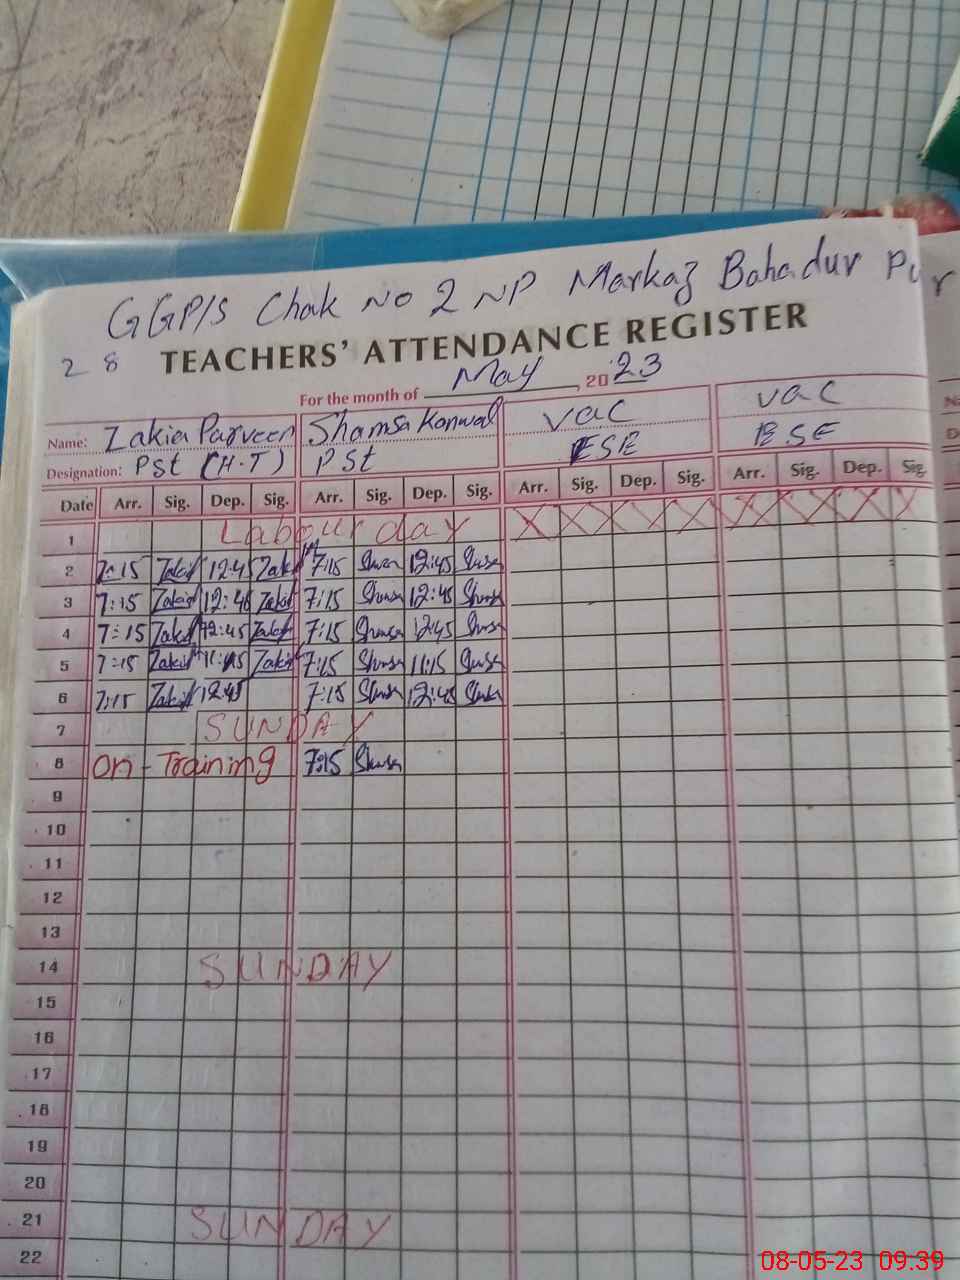 GGP/S Chak No 2 NP Markaz Bahadur Pur
28 TEACHERS' ATTENDANCE REGISTER
For the month of May, 2023
Name: Zakia Parveen Shamsa Kanwal vac vac
Designation: PSt (H.T) PSt ESE ESE
Date Arr. Sig. Dep. Sig. Arr. Sig. Dep. Sig. Arr. Sig. Dep. Sig. Arr. Sig. Dep. Sig.
1 Labour day X X X X X X X X
2 7:15 Zakia 12:45 Zakia 7:15 Shamsa 12:45 Shamsa
3 7:15 Zakia 12:45 Zakia 7:15 Shamsa 12:45 Shamsa
4 7:15 Zakia 12:45 Zakia 7:15 Shamsa 12:45 Shamsa
5 7:15 Zakia 11:15 Zakia 7:15 Shamsa 11:15 Shamsa
6 7:15 Zakia 12:45 7:15 Shamsa 12:45 Shamsa
7 SUNDAY
8 On-Training 7:15 Shamsa
9
10
11
12
13
14 SUNDAY
15
16
17
18
19
20
21 SUNDAY
22
08-05-23 09.39